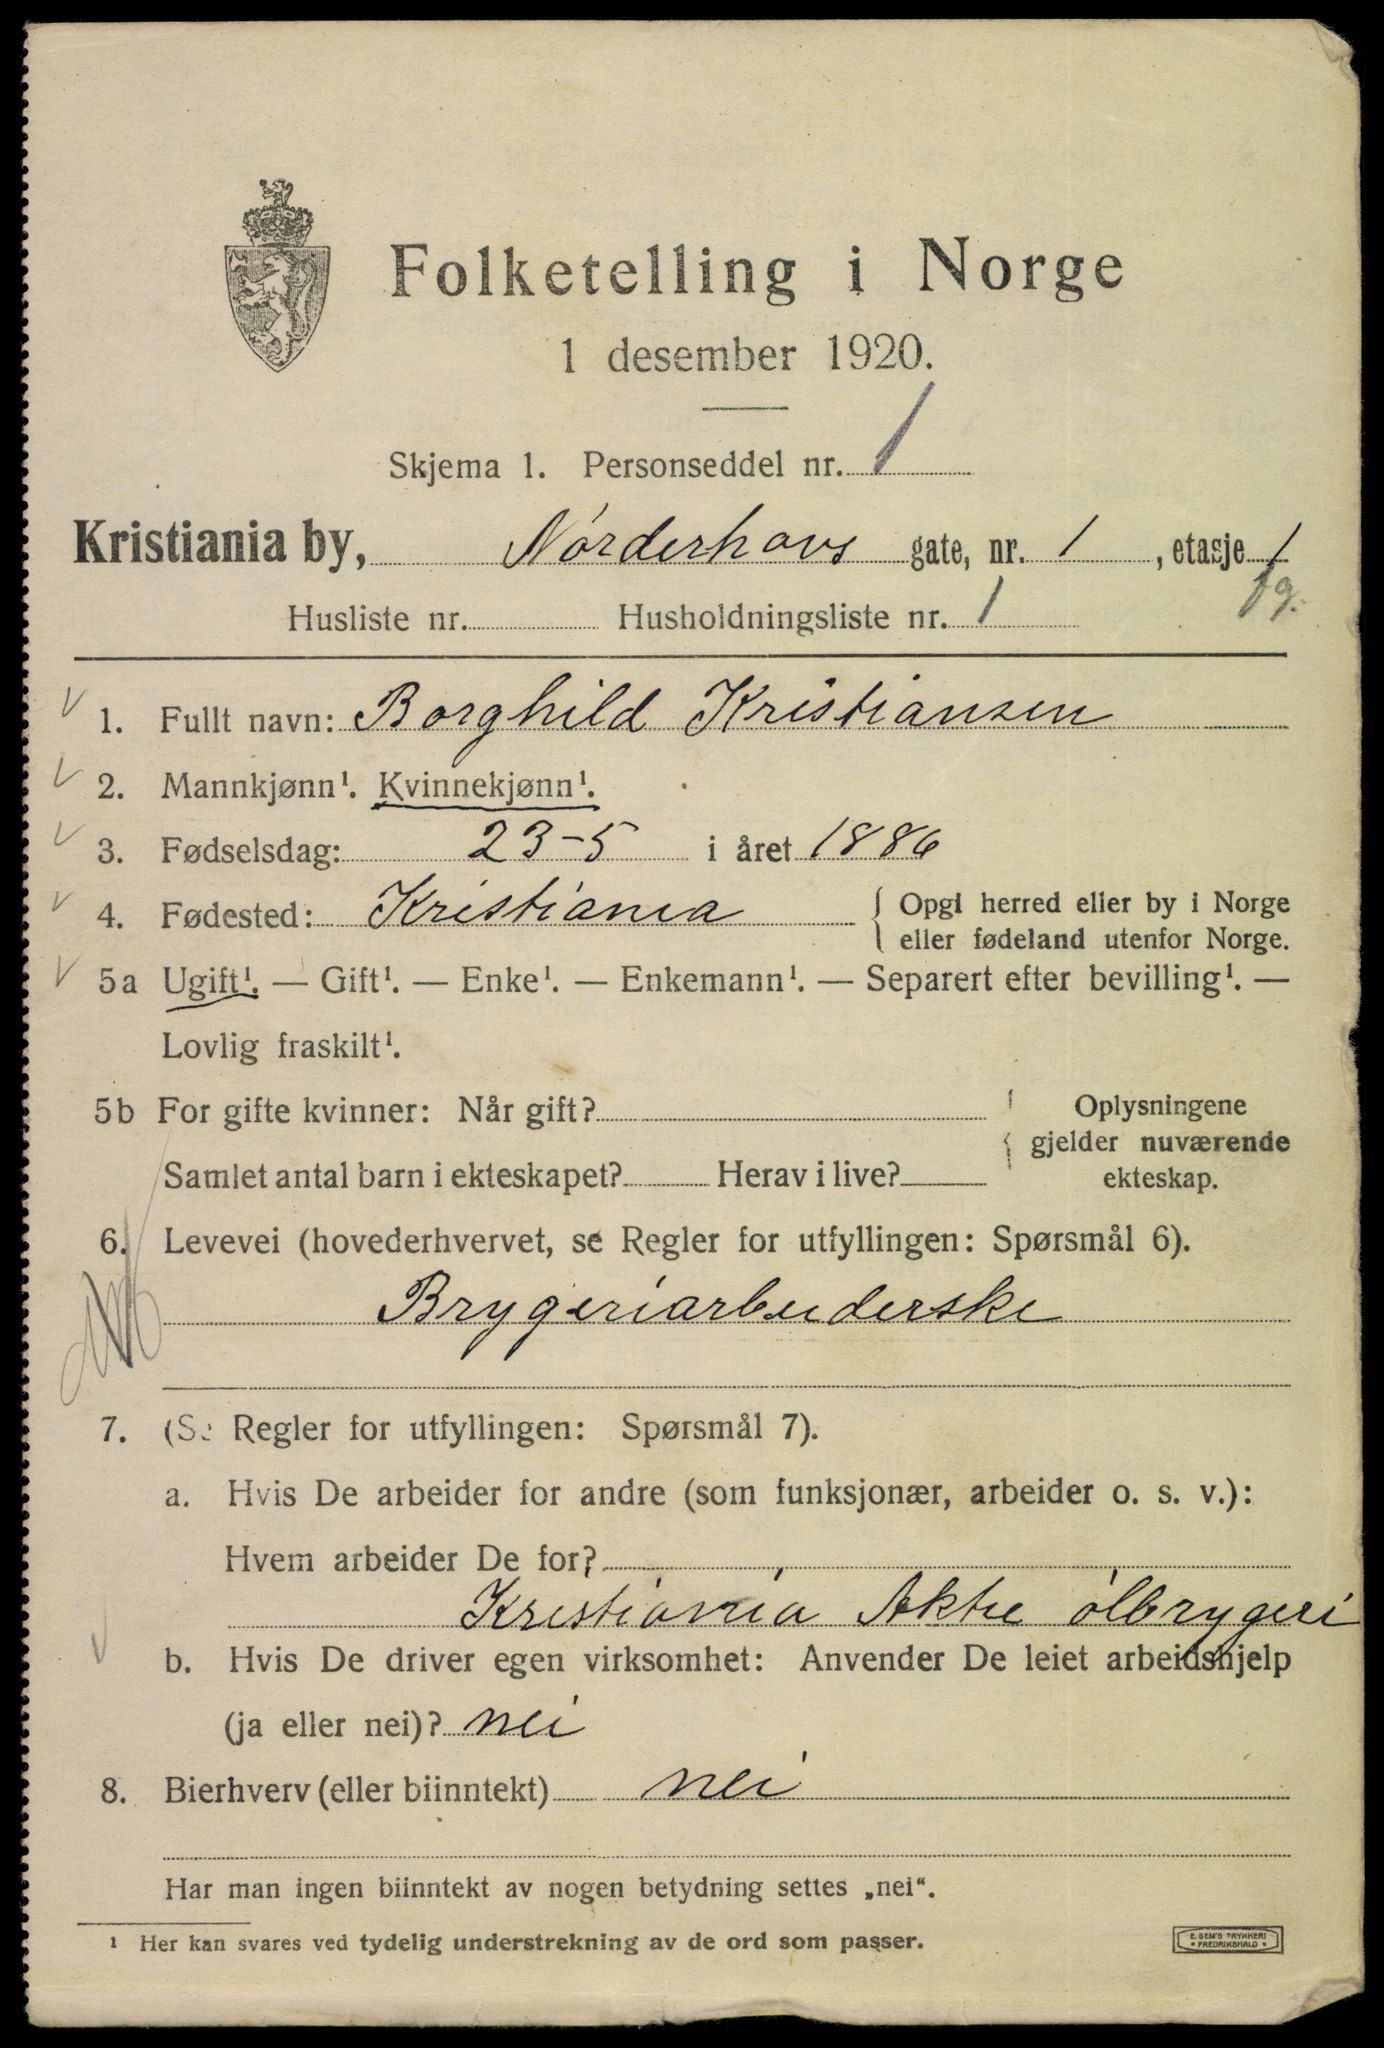 Folketelling i Norge
1 desember 1920.
Skjema 1. Personseddel nr. 1
Kristiania by, Nórderhovs gate, nr. 1, etasje 1
Husliste nr. Husholdningsliste nr. 1
1. Fullt navn: Borghild Kristiansen
2. Mannkjønn¹. Kvinnekjønn¹.
3. Fødselsdag: 23-5 i året 1886
4. Fødested: Kristiania { Opgi herred eller by i Norge
eller fødeland utenfor Norge.
5a Ugift¹. — Gift¹. — Enke¹. — Enkemann¹. — Separert efter bevilling¹. —
Lovlig fraskilt¹.
5b For gifte kvinner: Når gift? Oplysningene
gjelder nuværende
Samlet antal barn i ekteskapet? Herav i live? ekteskap.
6. Levevei (hovederhvervet, se Regler for utfyllingen: Spørsmål 6).
Brygeriarbeiderske
7. (Se Regler for utfyllingen: Spørsmål 7).
a. Hvis De arbeider for andre (som funksjonær, arbeider o. s. v.):
Hvem arbeider De for?
Kristiania Aktie ólbrygeri
b. Hvis De driver egen virksomhet: Anvender De leiet arbeidshjelp
(ja eller nei)? nei
8. Bierhverv (eller biinntekt) nei
Har man ingen biinntekt av nogen betydning settes „nei“.
¹ Her kan svares ved tydelig understrekning av de ord som passer.
E. SEM'S TRYKKERI
• FREDRIKSHALD •